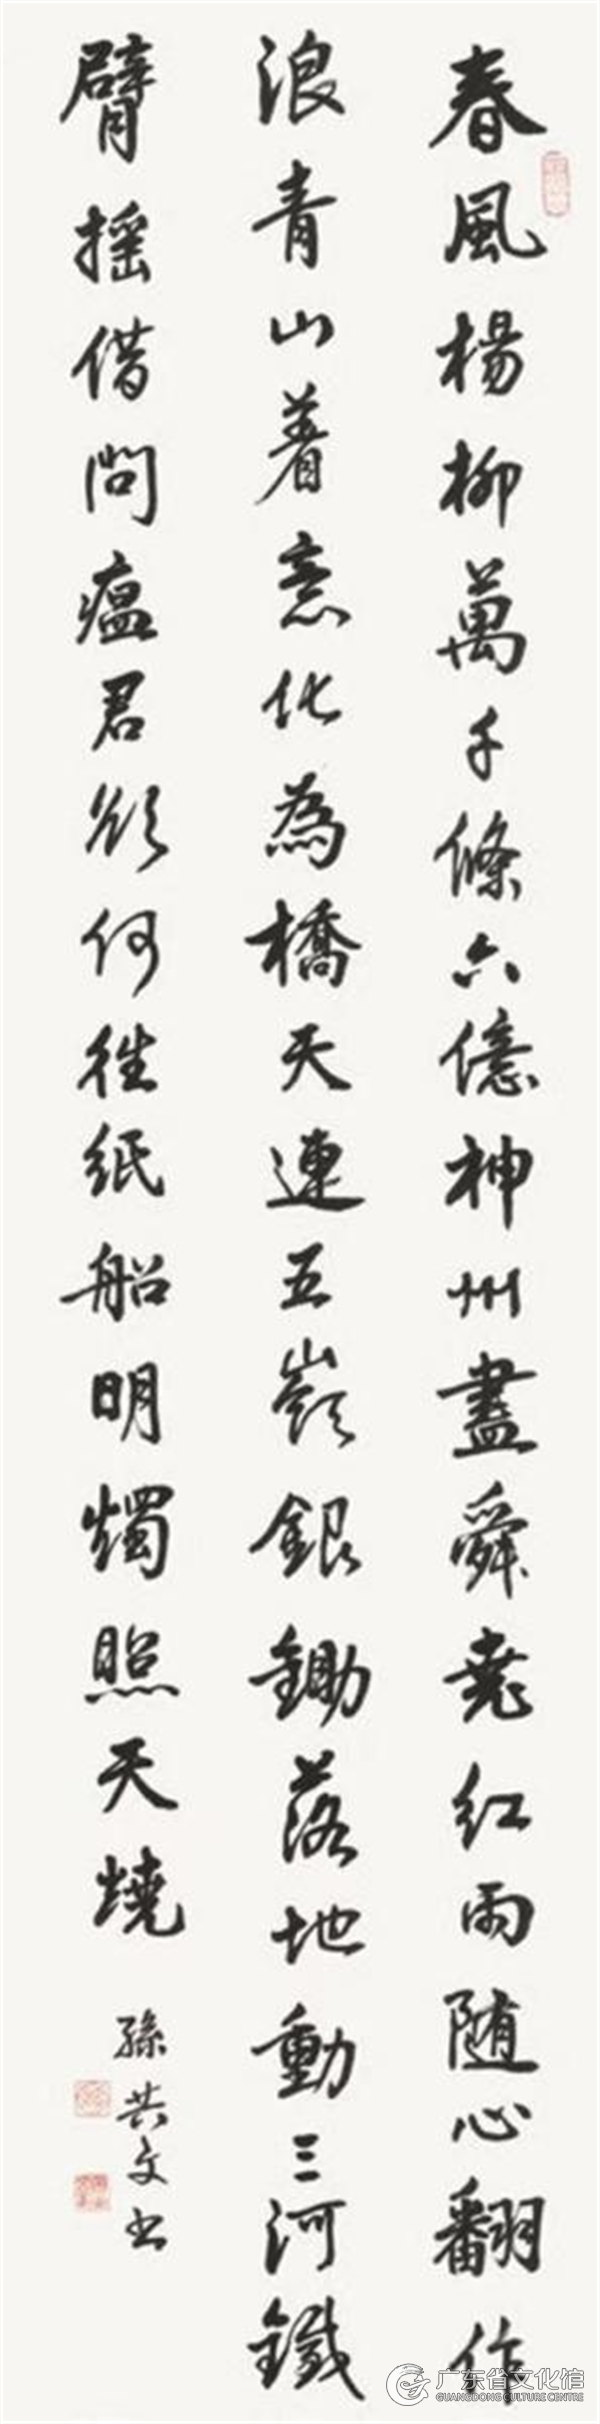 春風楊柳萬千條六億神州盡舜堯紅雨随心翻作
浪青山着意化為橋天連五嶺銀鋤落地動三河鐵
臂摇借問瘟君欲何往紙船明燭照天燒
孫共文书
广东省文化馆
GUANGDONG CULTURE CENTRE